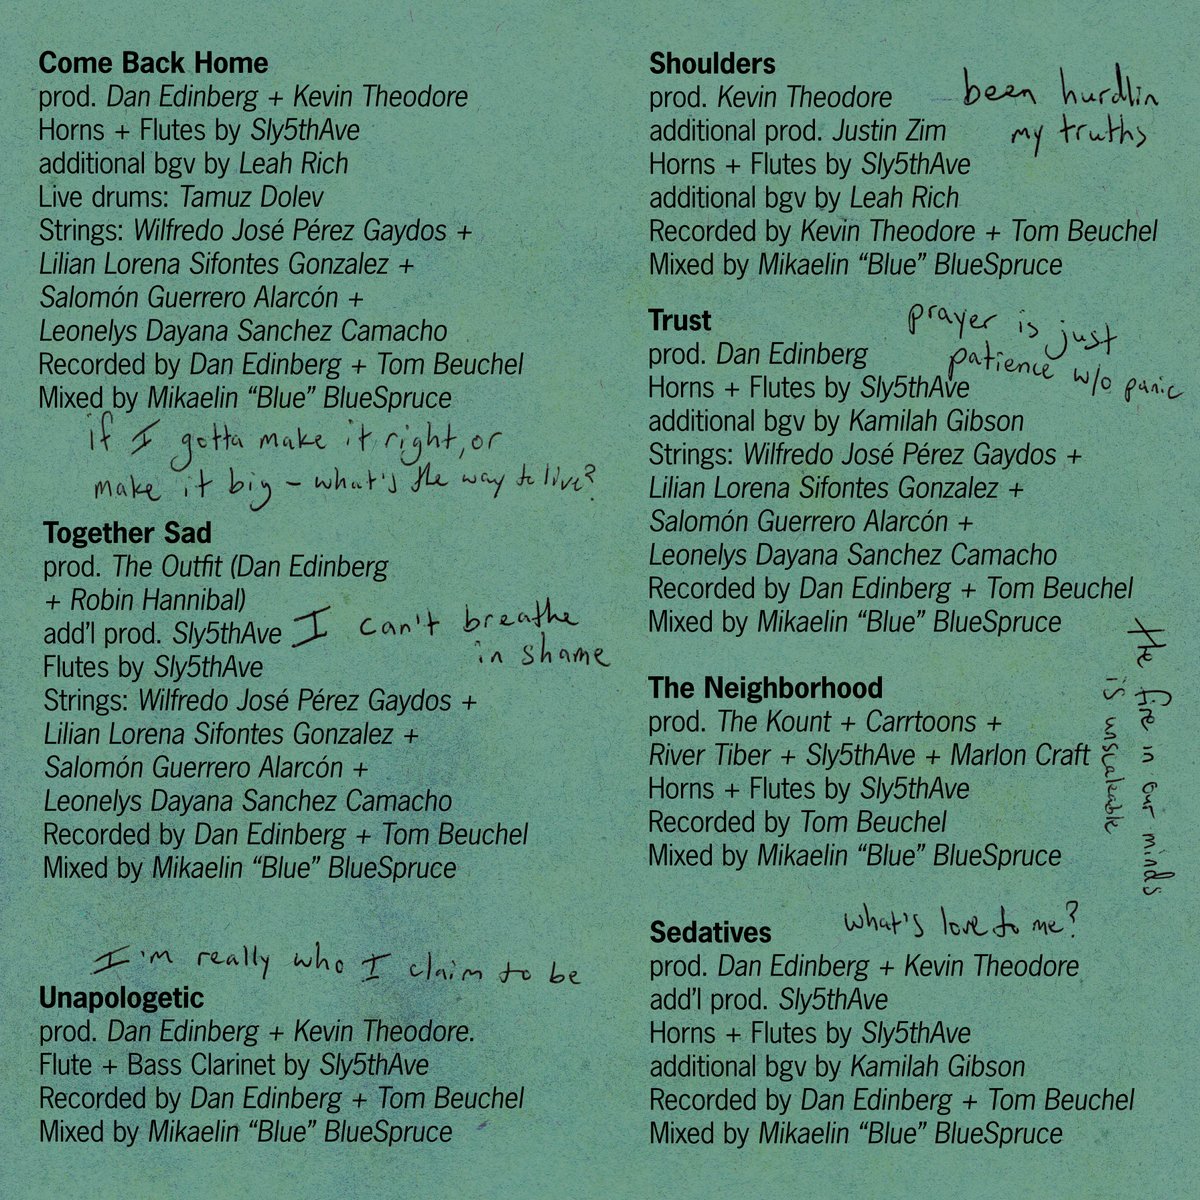 Come Back Home
prod. Dan Edinberg + Kevin Theodore
Horns + Flutes by Sly5thAve
additional bgv by Leah Rich
Live drums: Tamuz Dolev
Strings: Wilfredo José Pérez Gaydos +
Lilian Lorena Sifontes Gonzalez +
Salomón Guerrero Alarcón +
Leonelys Dayana Sanchez Camacho
Recorded by Dan Edinberg + Tom Beuchel
Mixed by Mikaelin “Blue” BlueSpruce
if I gotta make it right, or
make it big – what's the way to live?
Together Sad
prod. The Outfit (Dan Edinberg
+ Robin Hannibal)
add’l prod. Sly5thAve
I can't breathe
in shame
Flutes by Sly5thAve
Strings: Wilfredo José Pérez Gaydos +
Lilian Lorena Sifontes Gonzalez +
Salomón Guerrero Alarcón +
Leonelys Dayana Sanchez Camacho
Recorded by Dan Edinberg + Tom Beuchel
Mixed by Mikaelin “Blue” BlueSpruce
I'm really who I claim to be
Unapologetic
prod. Dan Edinberg + Kevin Theodore.
Flute + Bass Clarinet by Sly5thAve
Recorded by Dan Edinberg + Tom Beuchel
Mixed by Mikaelin “Blue” BlueSpruce
Shoulders
been hurdlin
my truths
prod. Kevin Theodore
additional prod. Justin Zim
Horns + Flutes by Sly5thAve
additional bgv by Leah Rich
Recorded by Kevin Theodore + Tom Beuchel
Mixed by Mikaelin “Blue” BlueSpruce
Trust
prayer is just
patience w/o panic
prod. Dan Edinberg
Horns + Flutes by Sly5thAve
additional bgv by Kamilah Gibson
Strings: Wilfredo José Pérez Gaydos +
Lilian Lorena Sifontes Gonzalez +
Salomón Guerrero Alarcón +
Leonelys Dayana Sanchez Camacho
Recorded by Dan Edinberg + Tom Beuchel
Mixed by Mikaelin “Blue” BlueSpruce
The Neighborhood
prod. The Kount + Carrtoons +
River Tiber + Sly5thAve + Marlon Craft
Horns + Flutes by Sly5thAve
Recorded by Tom Beuchel
Mixed by Mikaelin “Blue” BlueSpruce
the fire in our minds
is unscaleable
Sedatives
what's love to me?
prod. Dan Edinberg + Kevin Theodore
add’l prod. Sly5thAve
Horns + Flutes by Sly5thAve
additional bgv by Kamilah Gibson
Recorded by Dan Edinberg + Tom Beuchel
Mixed by Mikaelin “Blue” BlueSpruce